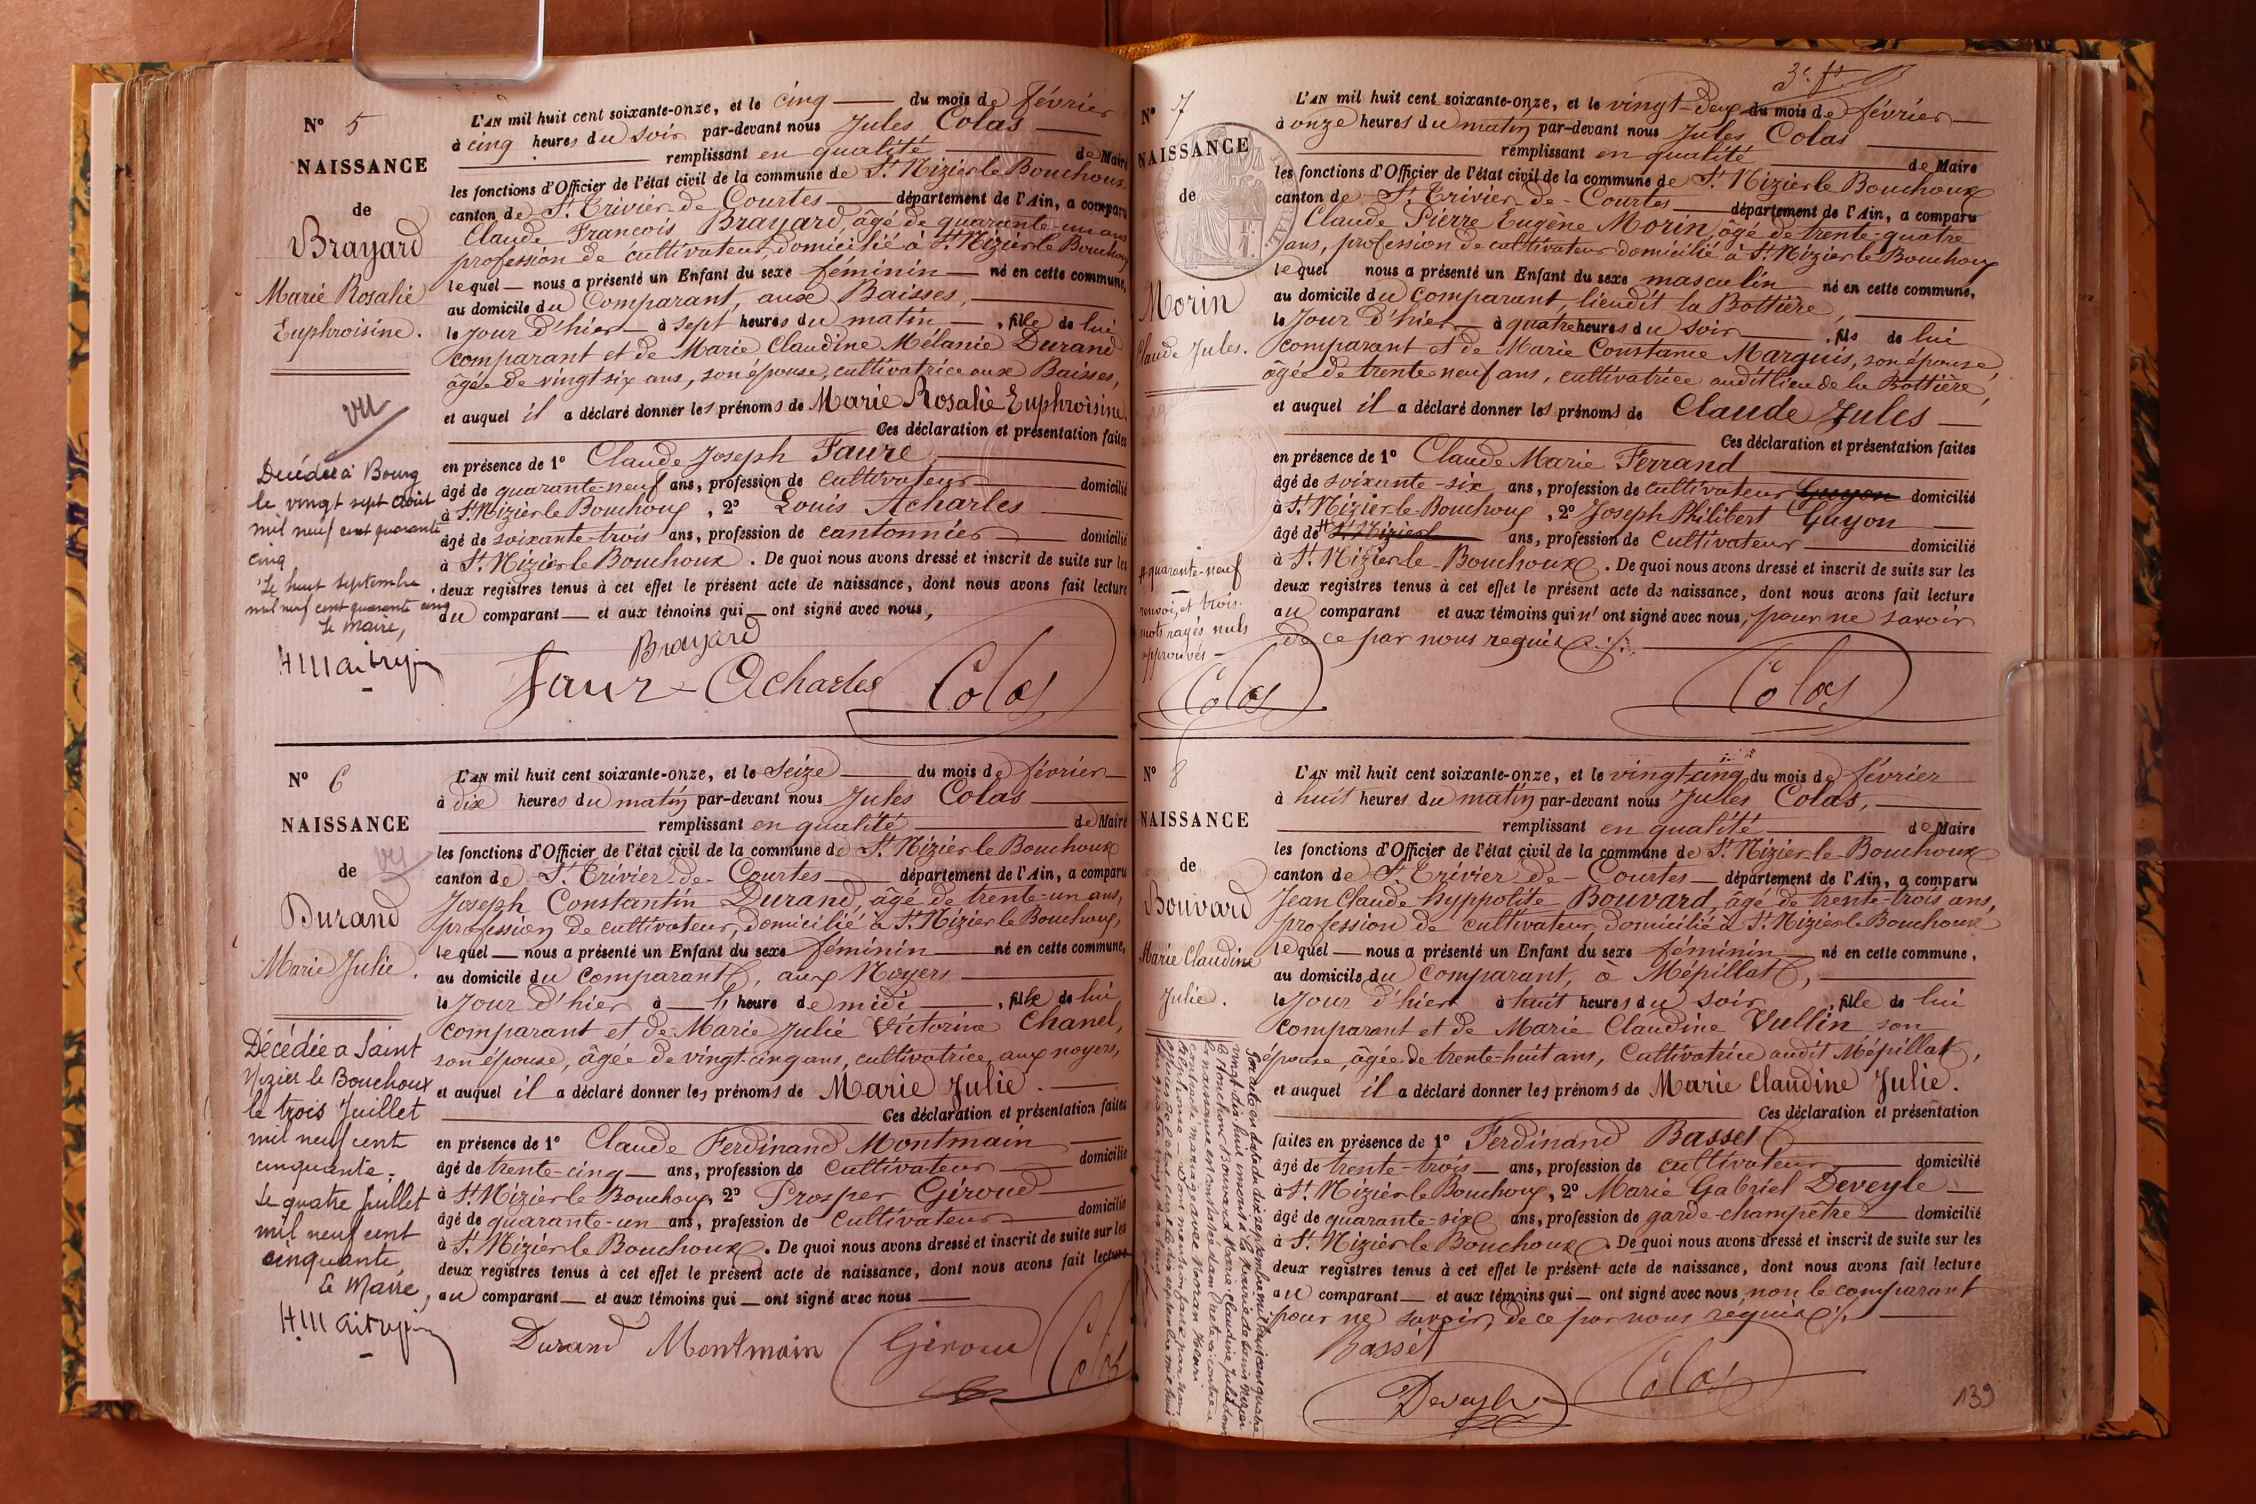 N° 5
NAISSANCE
de
Brayard
Marie Rosalie
Euphroisine.
vu
Décédée à Bourg
le vingt sept août
mil neuf cent quarante
cinq
Le huit septembre
mil neuf cent quarante cinq
Le Maire,
L'AN mil huit cent soixante-onze, et le cinq du mois de février
à cinq heures du soir par-devant nous Jules Colas
remplissant en qualité de Maire
les fonctions d'Officier de l'état civil de la commune de St Nizier le Bouchoux
canton de St Trivier de Courtes département de l'Ain, a comparu
Claude François Brayard, âgé de quarante-un ans
profession de cultivateur, domicilié à St Nizier le Bouchoux
lequel nous a présenté un Enfant du sexe féminin né en cette commune,
au domicile du Comparant, aux Baisses,
le jour d'hier à sept heures du matin, fille de lui
comparant et de Marie Claudine Mélanie Durand
âgée de vingt six ans, son épouse, cultivatrice aux Baisses,
et auquel il a déclaré donner les prénoms de Marie Rosalie Euphroisine.
Ces déclaration et présentation faites
en présence de 1° Claude Joseph Faure,
âgé de quarante-neuf ans, profession de cultivateur domicilié
à St Nizier le Bouchoux, 2° Louis Acharles
âgé de soixante-trois ans, profession de cantonnier domicilié
à St Nizier le Bouchoux. De quoi nous avons dressé et inscrit de suite sur les
deux registres tenus à cet effet le présent acte de naissance, dont nous avons fait lecture
au comparant et aux témoins qui ont signé avec nous,
Brayard
Faur Acharles Colas
N° 6
NAISSANCE
de
vu
Durand
Marie Julie.
Décédée a Saint
Nizier le Bouchoux
le trois Juillet
mil neuf cent
cinquante.
Le quatre Juillet
mil neuf cent
cinquante
Le Maire,
L'AN mil huit cent soixante-onze, et le seize du mois de février
à dix heures du matin par-devant nous Jules Colas
remplissant en qualité de Maire
les fonctions d'Officier de l'état civil de la commune de St Nizier le Bouchoux
canton de St Trivier-de-Courtes département de l'Ain, a comparu
Joseph Constantin Durand, âgé de trente-un ans,
profession de cultivateur, domicilié à St Nizier le Bouchoux,
lequel nous a présenté un Enfant du sexe féminin né en cette commune,
au domicile du comparant, aux Noyers
le jour d'hier à heure de midi, fille de lui
comparant et de Marie Julie Victorine Chanel,
son épouse, âgée de vingt-cinq ans, cultivatrice, aux noyers,
et auquel il a déclaré donner les prénoms de Marie Julie.
Ces déclaration et présentation faites
en présence de 1° Claude Ferdinand Montmain
âgé de trente-cinq ans, profession de cultivateur domicilié
à St Nizier le Bouchoux, 2° Prosper Giroud
âgé de quarante-un ans, profession de cultivateur domicilié
à St Nizier le Bouchoux. De quoi nous avons dressé et inscrit de suite sur les
deux registres tenus à cet effet le présent acte de naissance, dont nous avons fait lecture
au comparant et aux témoins qui ont signé avec nous
Durand Montmain Giroud Colas
N° 7
NAISSANCE
de
Morin
Claude Jules.
quarante-neuf
renvoi, et trois
mots rayés nuls
approuvés
Colas
L'AN mil huit cent soixante-onze, et le vingt-deux du mois de février
à onze heures du matin par-devant nous Jules Colas
remplissant en qualité de Maire
les fonctions d'Officier de l'état civil de la commune de St Nizier le Bouchoux
canton de St Trivier-de-Courtes département de l'Ain, a comparu
Claude Pierre Eugène Morin, âgé de trente-quatre
ans, profession de cultivateur domicilié à St Nizier le Bouchoux
lequel nous a présenté un Enfant du sexe masculin né en cette commune,
au domicile du comparant, lieudit la Bottière,
le jour d'hier à quatre heures du soir, fils de lui
comparant et de Marie Constance Marquis, son épouse,
âgée de trente neuf ans, cultivatrice audit lieu de la Bottière,
et auquel il a déclaré donner les prénoms de Claude Jules
Ces déclaration et présentation faites
en présence de 1° Claude Marie Ferrand
âgé de soixante-six ans, profession de cultivateur Guyon domicilié
à St Nizier le Bouchoux, 2° Joseph Philibert Guyon
âgé de St Nizier le ans, profession de cultivateur domicilié
à St Nizier le Bouchoux. De quoi nous avons dressé et inscrit de suite sur les
deux registres tenus à cet effet le présent acte de naissance, dont nous avons fait lecture
au comparant et aux témoins qui n'ont signé avec nous, pour ne savoir
de ce par nous requis.
Colas
N° 8
NAISSANCE
de
Bouvard
Marie Claudine
Julie.
L'AN mil huit cent soixante-onze, et le vingt-cinq du mois de février
à huit heures du matin par-devant nous Jules Colas,
remplissant en qualité de Maire
les fonctions d'Officier de l'état civil de la commune de St Nizier le Bouchoux
canton de St Trivier-de-Courtes département de l'Ain, a comparu
Jean Claude hyppolite Bouvard, âgé de trente-trois ans,
profession de cultivateur, domicilié à St Nizier le Bouchoux
lequel nous a présenté un Enfant du sexe féminin né en cette commune,
au domicile du comparant, à Mépillat,
le jour d'hier à huit heures du soir, fille de lui
comparant et de Marie Claudine Vullin son
épouse, âgée de trente-huit ans, cultivatrice audit Mépillat,
et auquel il a déclaré donner les prénoms de Marie Claudine Julie.
Ces déclaration et présentation
faites en présence de 1° Ferdinand Basset
âgé de trente-trois ans, profession de cultivateur domicilié
à St Nizier le Bouchoux, 2° Marie Gabriel Deveyle
âgé de quarante-six ans, profession de garde-champêtre domicilié
à St Nizier le Bouchoux. De quoi nous avons dressé et inscrit de suite sur les
deux registres tenus à cet effet le présent acte de naissance, dont nous avons fait lecture
au comparant et aux témoins qui ont signé avec nous, non le comparant
pour ne savoir, de ce par nous requis.
Basset
Deveyle Colas
139